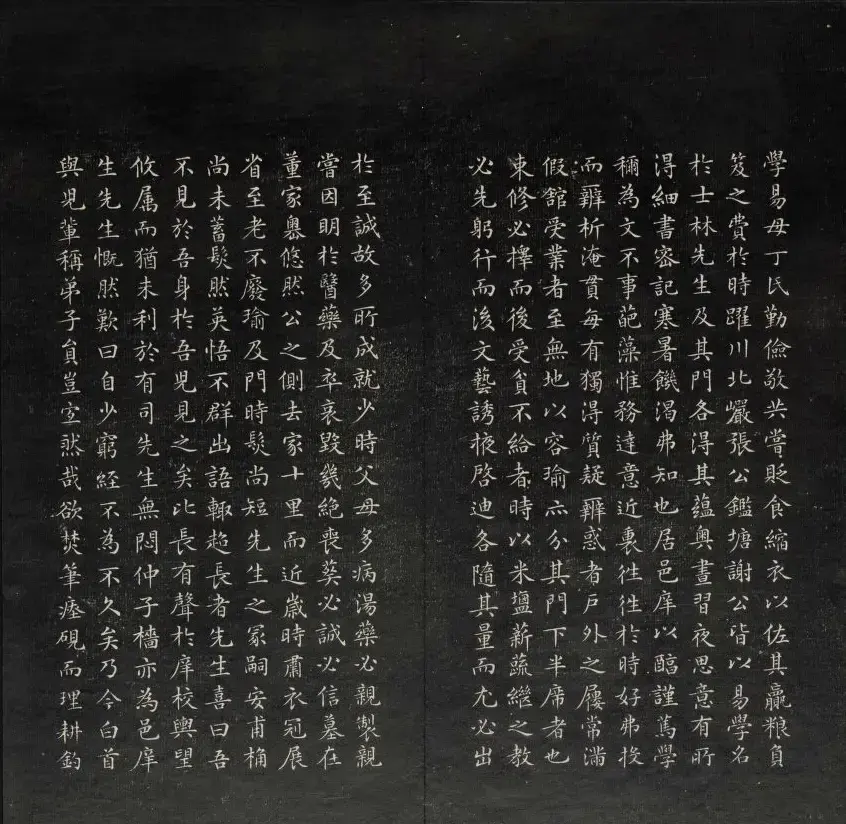 學易母丁氏勤儉敬共嘗貶食縮衣以佐其贏粮負
笈之費於時躍川北巗張公鑑塘謝公皆以易學名
於士林先生及其門各得其蘊奧晝習夜思意有所
得細書密記寒暑饑渴弗知也居邑庠以醕謹篤學
稱為文不事葩藻惟務達意近裏徃徃於時好弗投
而辯析淹貫每有獨得質疑辯惑者戶外之屨常滿
假舘受業者至無地以容瑜亦分其門下半席者也
束修必擇而後受貧不給者時以米塩薪蔬繼之教
必先躬行而後文藝誘掖啓迪各隨其量而尤必出
於至誠故多所成就少時父母多病湯藥必親製親
嘗因明於醫藥及卒哀毀幾絶喪葬必誠必信墓在
董家嶴悠然公之側去家十里而近嵗時肅衣冠展
省至老不廢瑜及門時髮尚短先生之冢嗣安甫桷
尚未蓄髮然英悟不群出語輙趂長者先生喜曰吾
不見於吾身於吾兒見之矣比長有聲於庠校輿望
攸属而猶未利於有司先生無悶仲子檣亦為邑庠
生先生慨然歎曰自少窮經不為不久矣乃今白首
與兒輩稱弟子負豈室然哉欲焚筆瘞硯而理耕釣